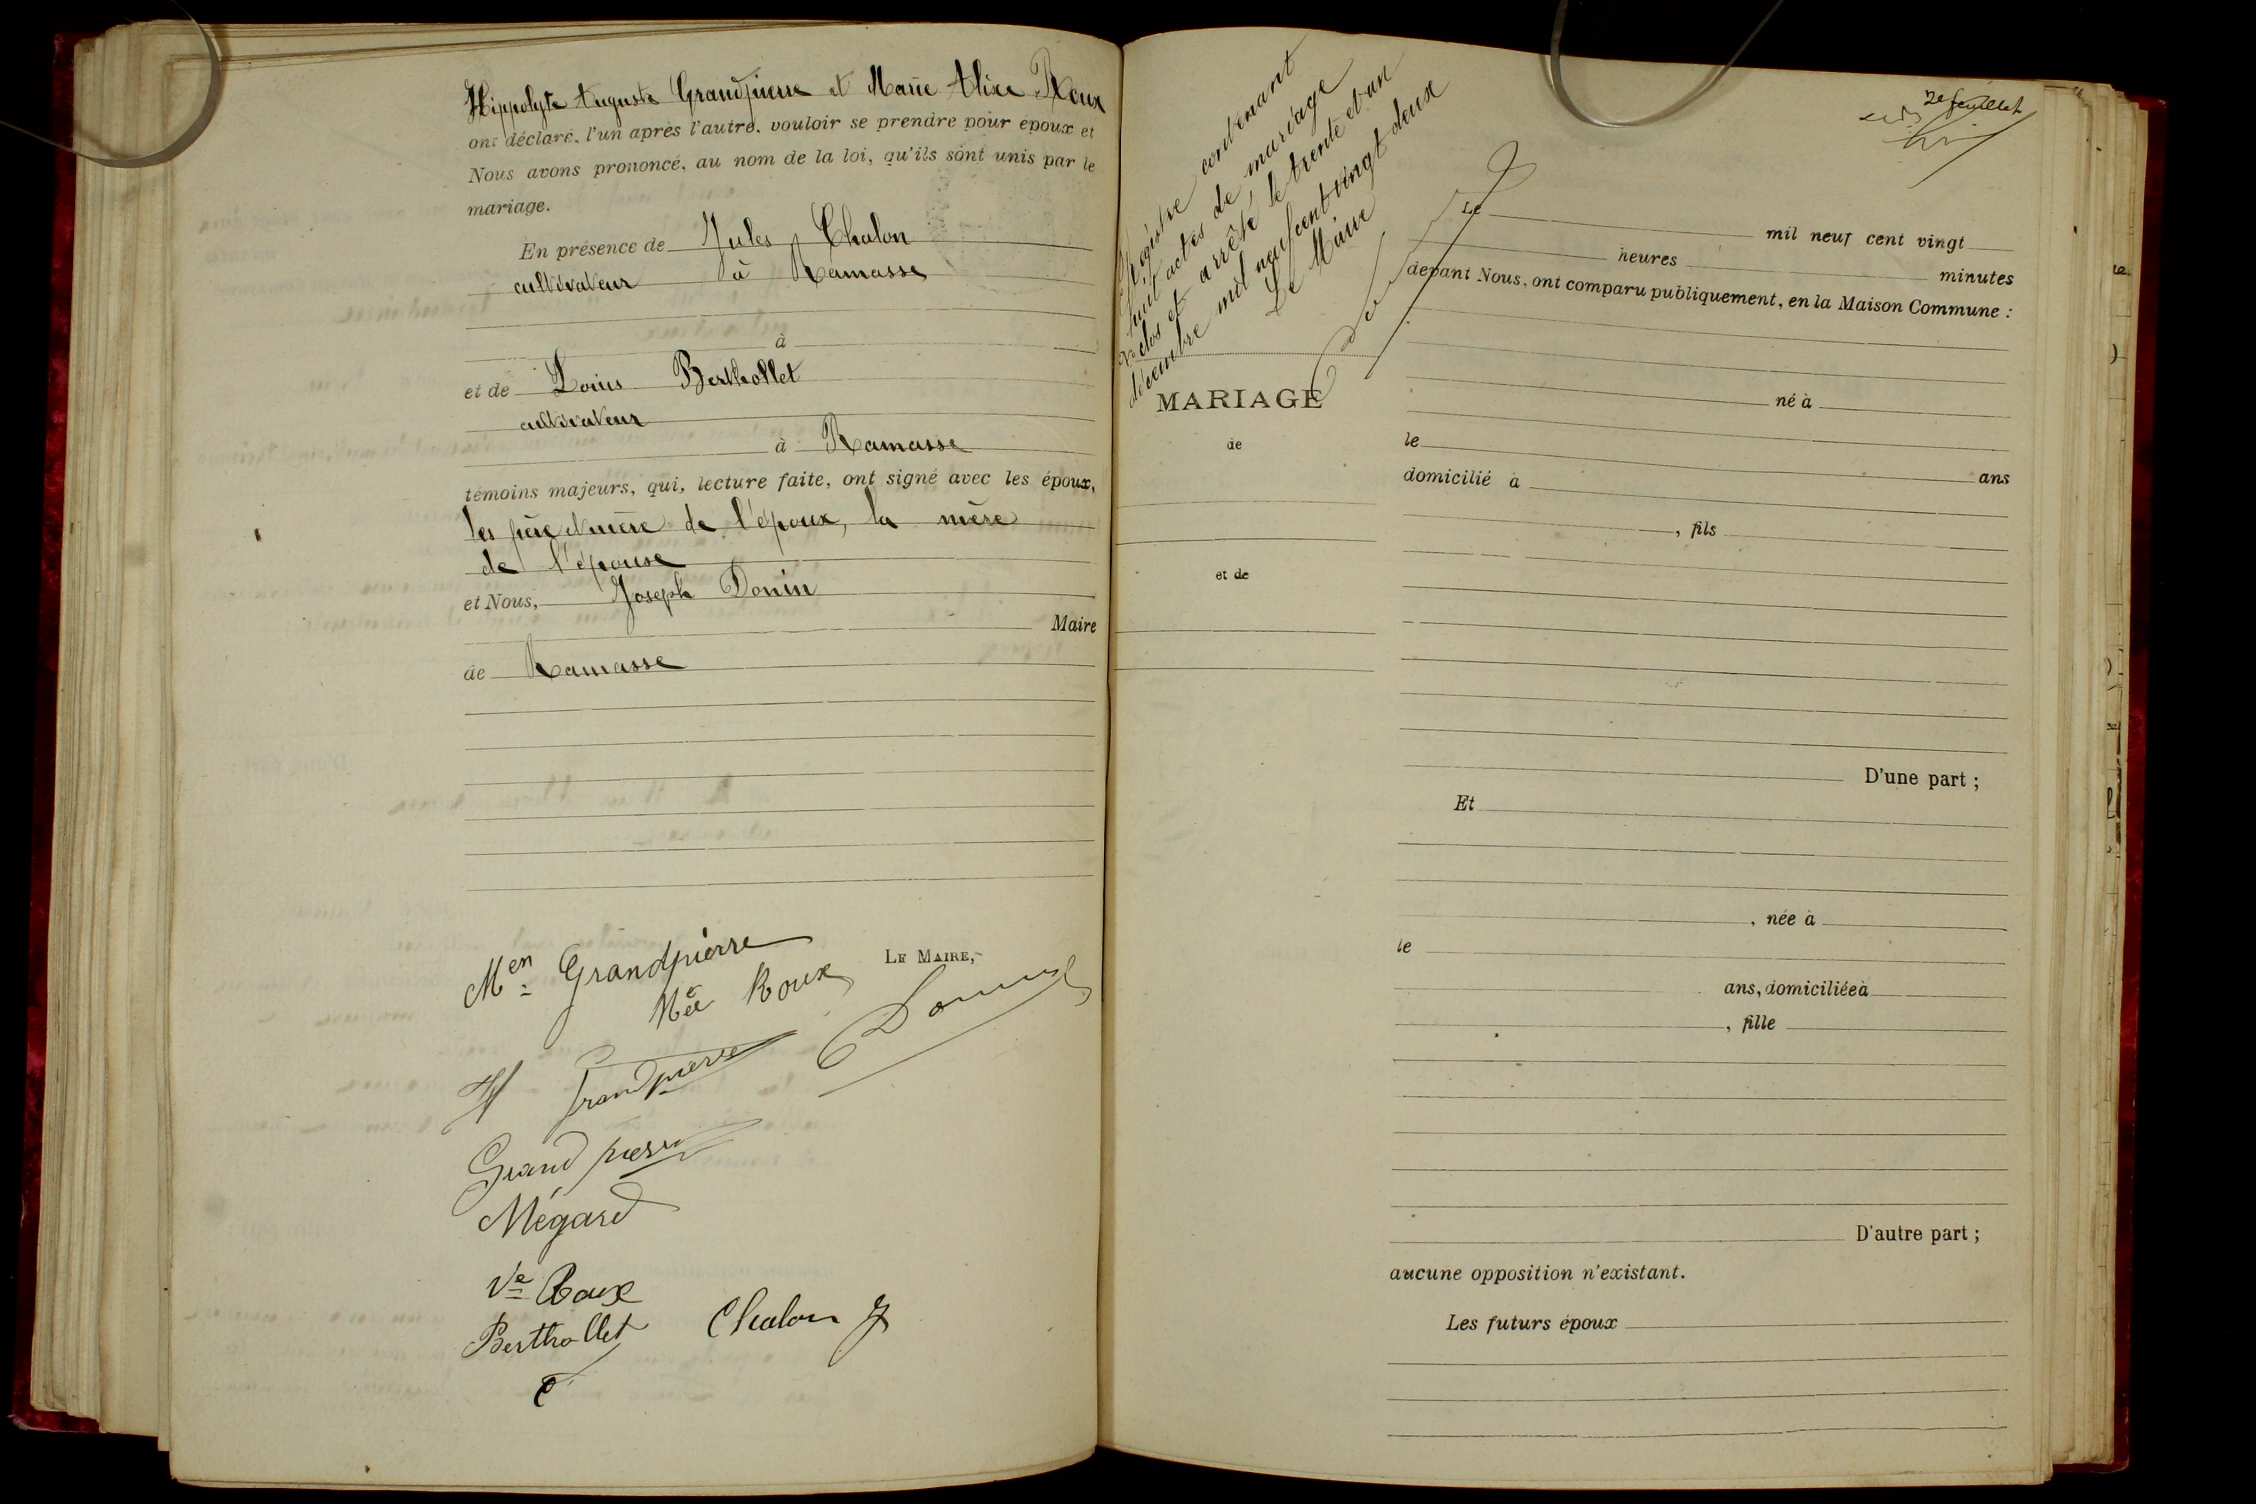 Hippolyte Auguste Grandpierre et Marie Alixe Roux
ont déclaré, l'un après l'autre, vouloir se prendre pour époux et
Nous avons prononcé, au nom de la loi, qu'ils sont unis par le
mariage.
En présence de Jules Chalon
cultivateur à Ramasse
à
et de Louis Berthollet
cultivateur
à Ramasse
témoins majeurs, qui, lecture faite, ont signé avec les époux,
les père et mère de l'époux, la mère
de l'épouse
et Nous, Joseph Donin
Maire
de Ramasse
Men Grandpierre
Née Roux
LE MAIRE,
Donin
H Grandpierre
Grandpierre
Mégard
Ve Roux
Berthollet
Chalon J
2e feuillet
Registre contenant
huit actes de mariage
clos et arrêté le trente et un
décembre mil neuf cent vingt deux
Le Maire
Donin
MARIAGE
de
et de
Le mil neuf cent vingt
heures minutes
devant Nous, ont comparu publiquement, en la Maison Commune :
né à
le
ans
domicilié à
, fils
D'une part ;
Et
, née à
le
ans, domiciliée à
, fille
D'autre part ;
aucune opposition n'existant.
Les futurs époux